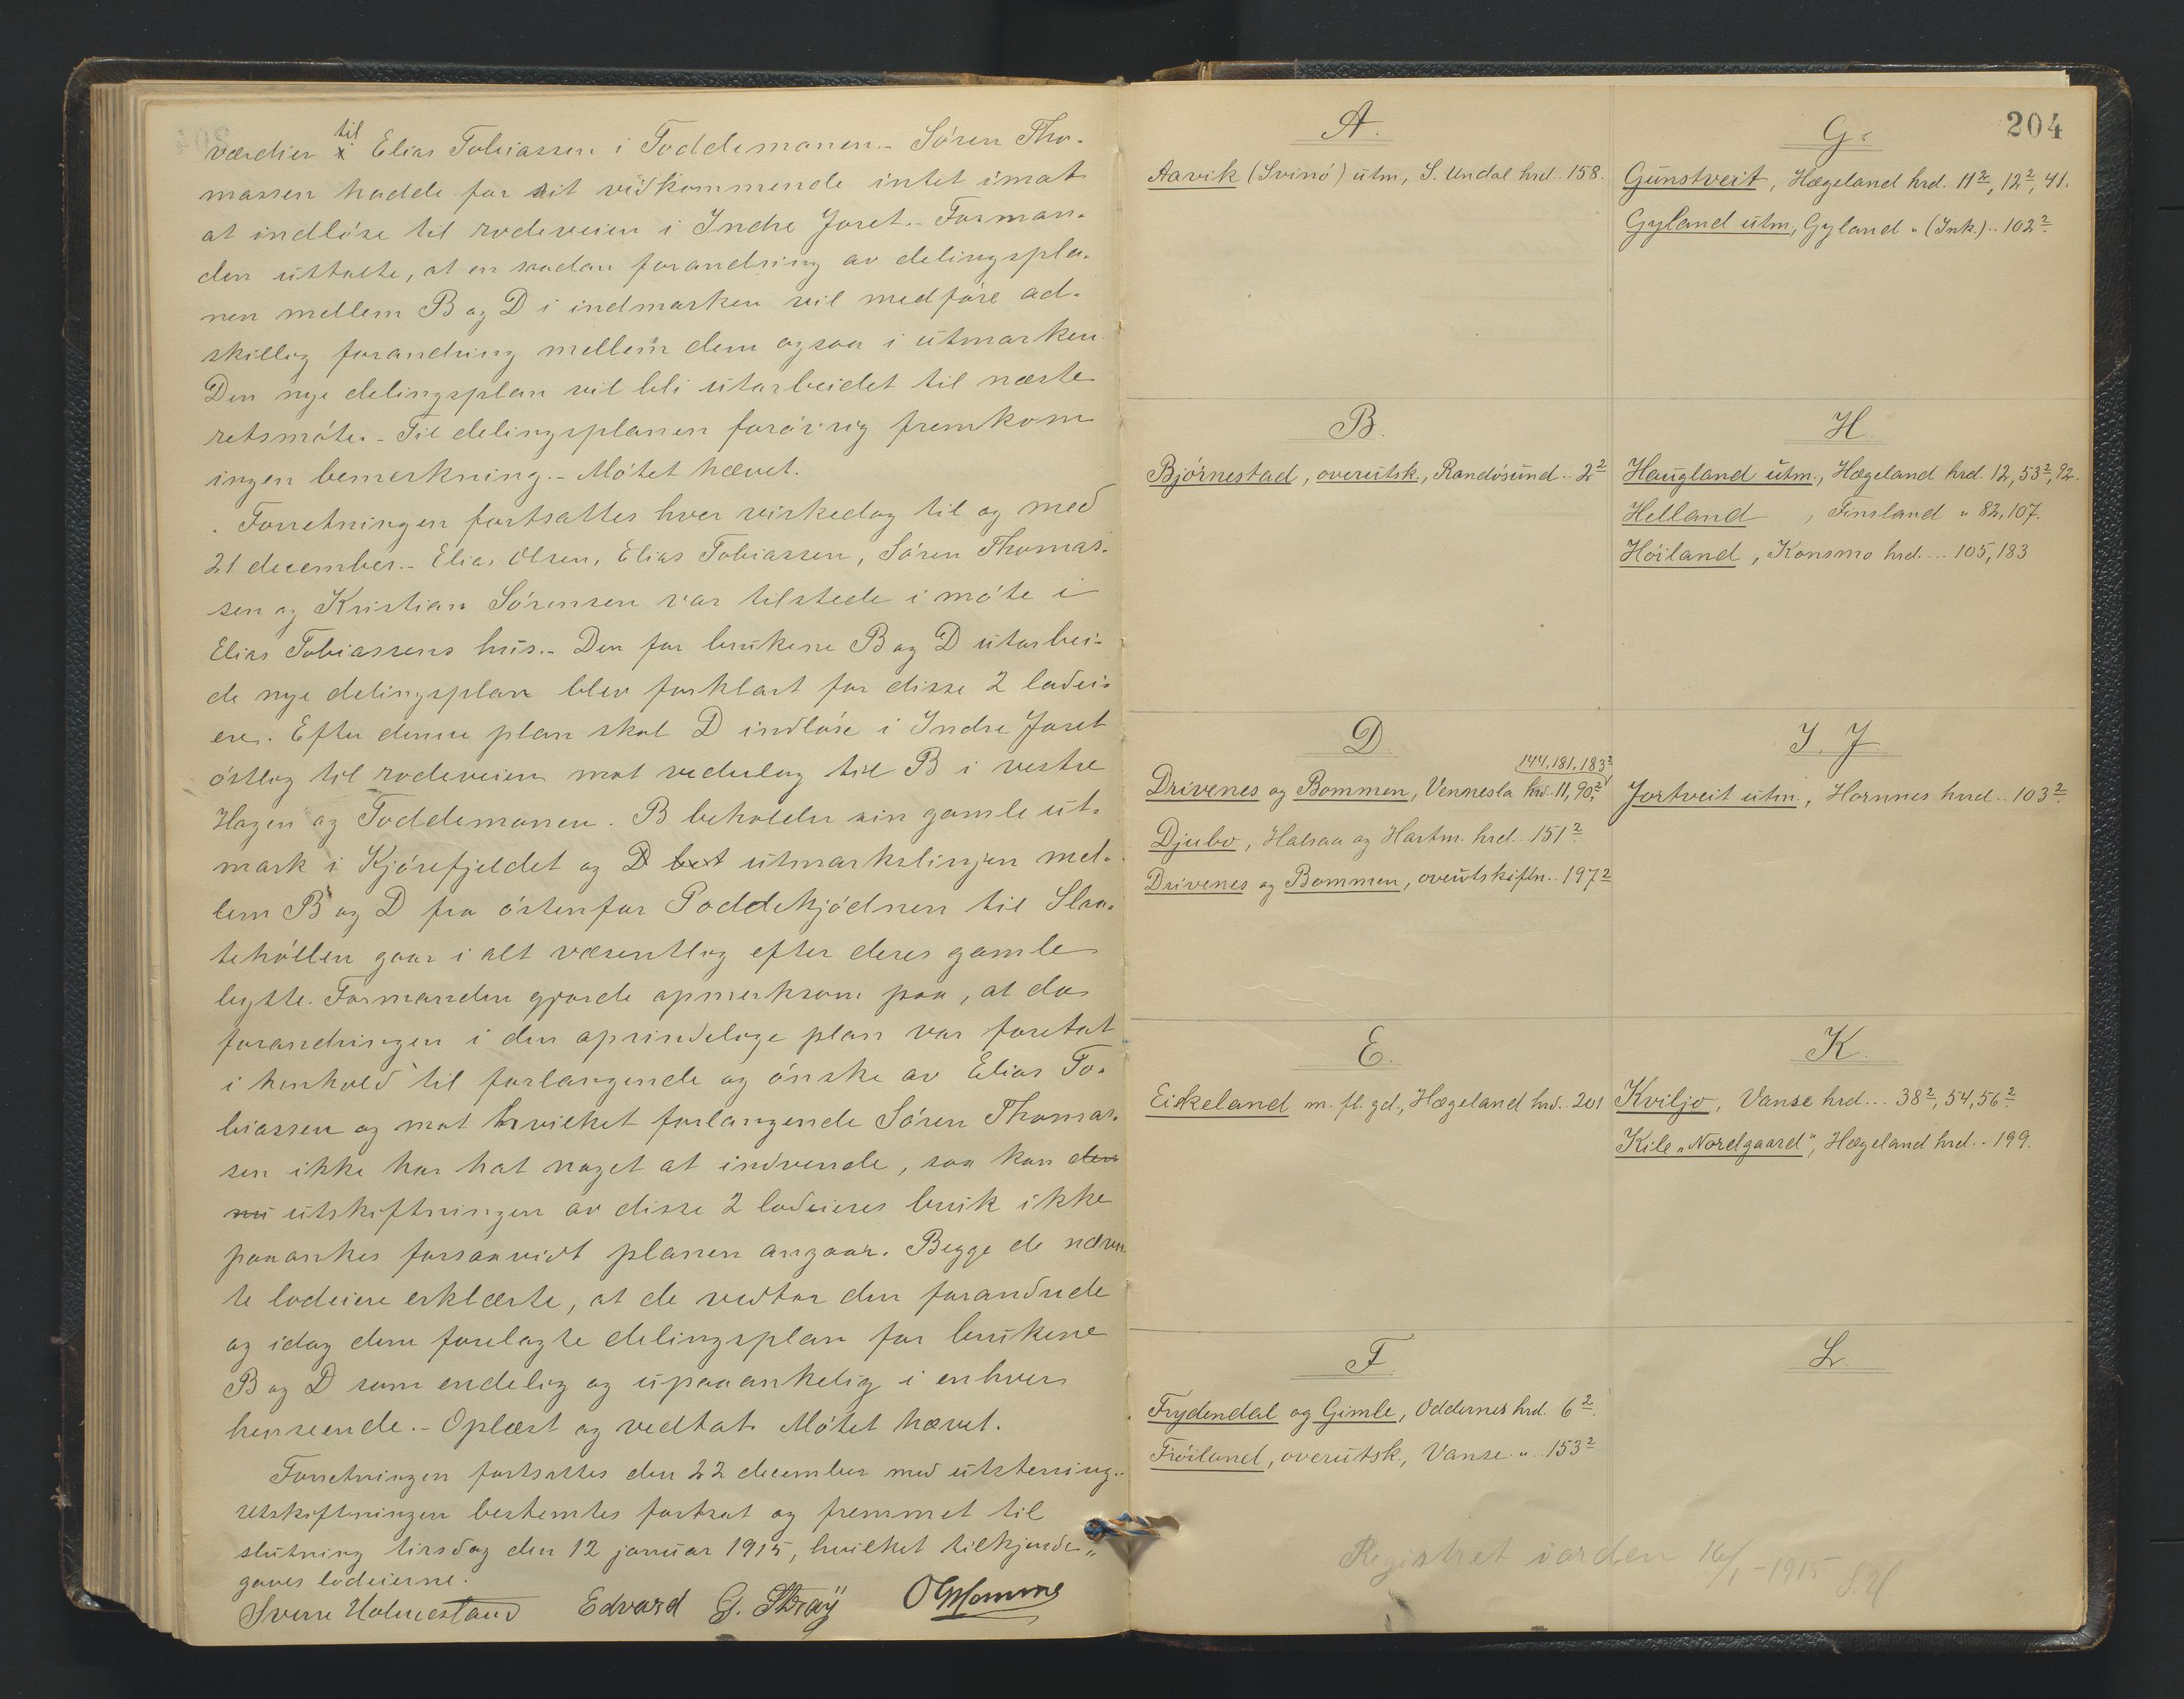 til
værdier i Elias Tobiassen i Toddemonen.- Sören Tho-
massen hadde for sit vedkommende intet imot
at indlöse til rodeveien i Indre Joret.- Forman-
den uttalte, at en saadan forandring av delingspla-
nen mellem B og D i indmarken vil medföre ad-
skillig forandring mellem dem ogsaa i utmarken.
Den nye delingsplan vil bli utarbeidet til næste
retsmöte.- Til delingsplanen forövrig fremkom
ingen bemerkning.- Mötet hævet.
Forretningen fortsattes hver virkedag til og med
21 december.- Elias Olsen, Elias Tobiassen, Sören Thomas-
sen og Kristian Sörensen var tilstede i möte i
Elias Tobiassens hus.- Den for brukene B og D utarbei-
de nye delingsplan blev forklart for disse 2 lodei-
ere. Efter denne plan skal D indlöse i Indre Joret
östlig til rodeveien mot vederlag til B i vestre
Hagen og Toddemonen. B beholder sin gamle ut-
mark i Kjörefjeldet og D bet utmarkslinjen mel-
lem B og D fra östenfor Poddekjödnen til Slaa-
tehöllen gaar i alt væsentlig efter deres gamle
bytte. Formanden gjorde opmerksom paa, at da
forandringen i den oprindelige plan var foretat
i henhold til forlangende og önske av Elias To-
biassen og mot hvilket forlangende Sören Thomas-
sen ikke har hat noget at indvende, saa kan den
nu utskiftningen av disse 2 lodeieres bruk ikke
paaankes forsaavidt planen angaar. Begge de nævn-
te lodeiere erklærte, at de vedtar den forandrede
og idag dem forelagte delingsplan for brukene
B og D som endelig og upaaankelig i enhver
henseende.- Oplæst og vedtat. Mötet hævet.
Forretningen fortsattes den 22 december med utstenning.-
utskiftningen bestemtes fortsat og fremmet til
slutning tirsdag den 12 januar 1915, hvilket tilkjende-
gaves lodeierne.
Sverre Holmestand Edvard G. Stray
204
A.
Aavik (Svinö) utm, S. Undal hrd. 158.
B.
Björnestad, overutsk., Randösund .. 2 2
D.
144, 181, 183 2
Drivenes og Bommen, Vennesla hrd. 11, 90 2,
Djubo, Halsaa og Hartm. hrd. 151 2
Drivenes og Bommen, overutskiftn.. 197 2
E.
Eiskeland m. fl. gd., Hægeland hrd.. 201
F.
Frydendal og Gimle, Oddernes hrd. 6 2.
Fröiland, overutsk., Vanse " .. 153 2
G.
Gunstveit, Hægeland hrd. 11 2, 12 2, 41.
Gyland utm, Gyland " (Ink.) .. 102 2.
H.
Haugland utm., Hægeland hrd. 12, 53 2, 92.
Helland, Finsland " 82, 107.
Höiland, Konsmo hrd. ... 105, 183
I. J.
Jortveit utm., Hornnes hrd.. 103 2.
K.
Kviljo, Vanse hrd... 38 2, 54, 56 2.
Kile "Nordgaard", Hægeland hrd.. 199.
L.
Registret i orden 16/1 - 1915 S.H